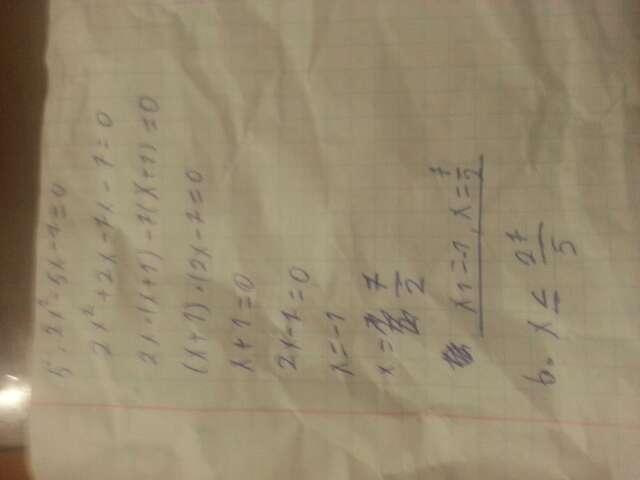 5. 2x²-5x-7=0
2x²+2x-7x-7=0
2x·(x+1)-7(x+1)=0
(x+1)·(2x-7)=0
x+1=0
2x-7=0
x=-1
x=7/2
x₁=-1, x=7/2
6. x ≤ 27/5